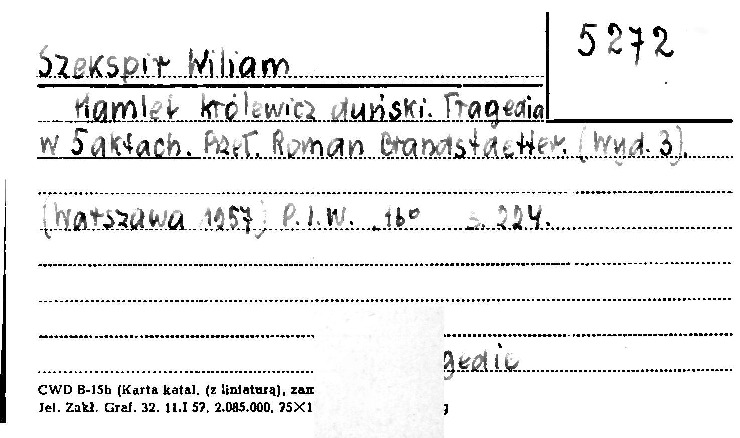 5272
Szekspir Wiliam
Hamlet królewicz duński. Tragedia
w 5 aktach. Przeł. Roman Brandstaetter. (Wyd. 3).
(Warszawa 1957) P.I.W. 16° s. 224.
gedie
CWD B-15b (Karta katal. (z liniaturą), zam
Jel. Zakł. Graf. 32. 11.I 57. 2.085.000. 75×1